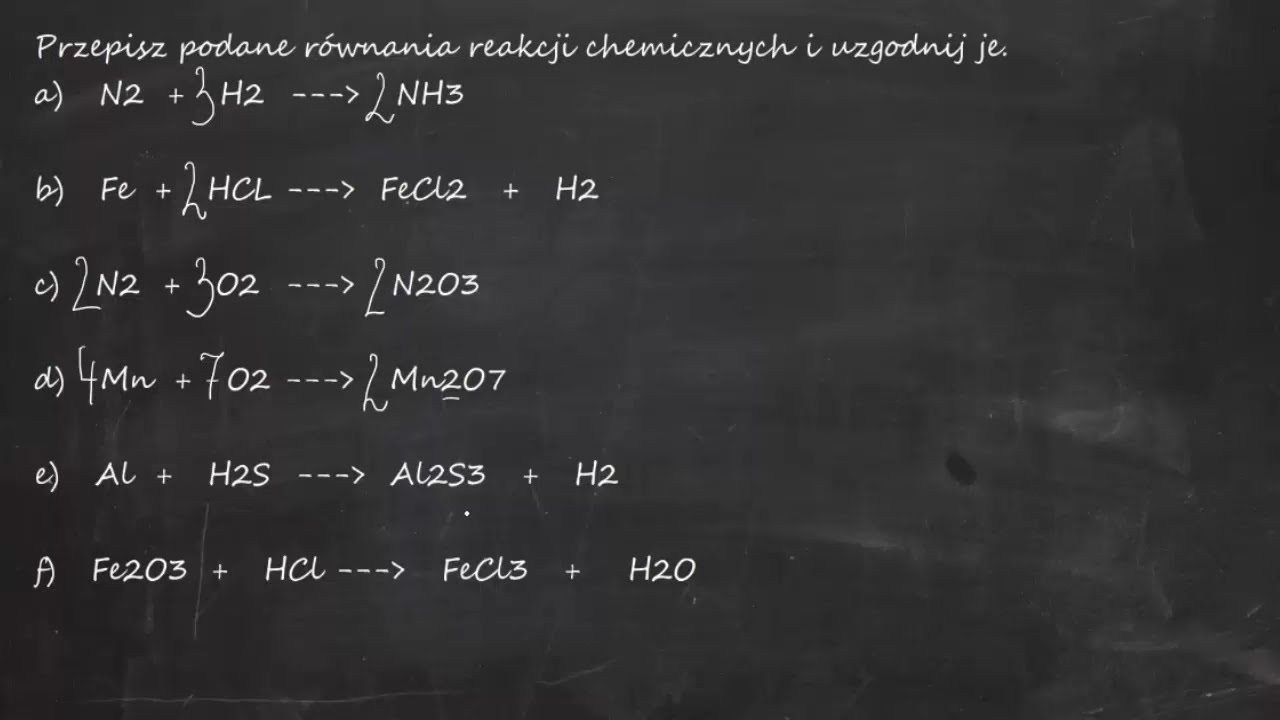 Przepisz podane równania reakcji chemicznych i uzgodnij je.
a) N2 + 3 H2 ---> 2 NH3
b) Fe + 2 HCL ---> FeCl2 + H2
c) 2 N2 + 3 O2 ---> 2 N2O3
d) 4 Mn + 7 O2 ---> 2 Mn2O7
e) Al + H2S ---> Al2S3 + H2
f) Fe2O3 + HCl ---> FeCl3 + H2O